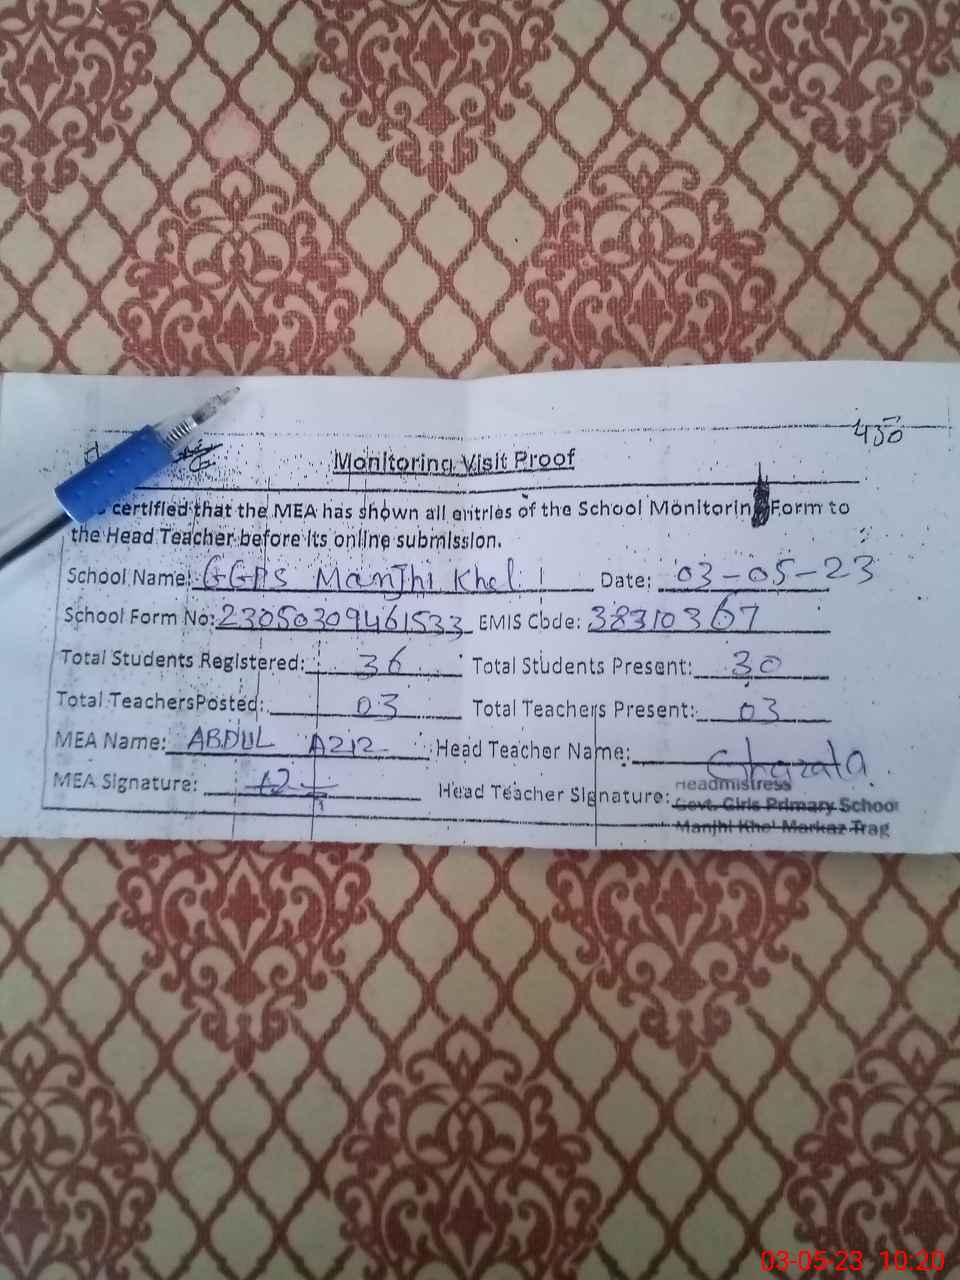 430
Monitoring Visit Proof
certified that the MEA has shown all entries of the School Monitoring Form to
the Head Teacher before its online submission.
School Name: GGPS Manjhi Khel Date: 03-05-23
School Form No: 23050309461533 EMIS Code: 38310367
Total Students Registered: 36 Total Students Present: 30
Total TeachersPosted: 03 Total Teachers Present: 03
MEA Name: ABDUL AZIZ Head Teacher Name: Ghazala
MEA Signature: Head Teacher Signature:
Headmistress
Govt. Girls Primary School
Manjhi Khel Markaz Trag
03-05-23 10:20